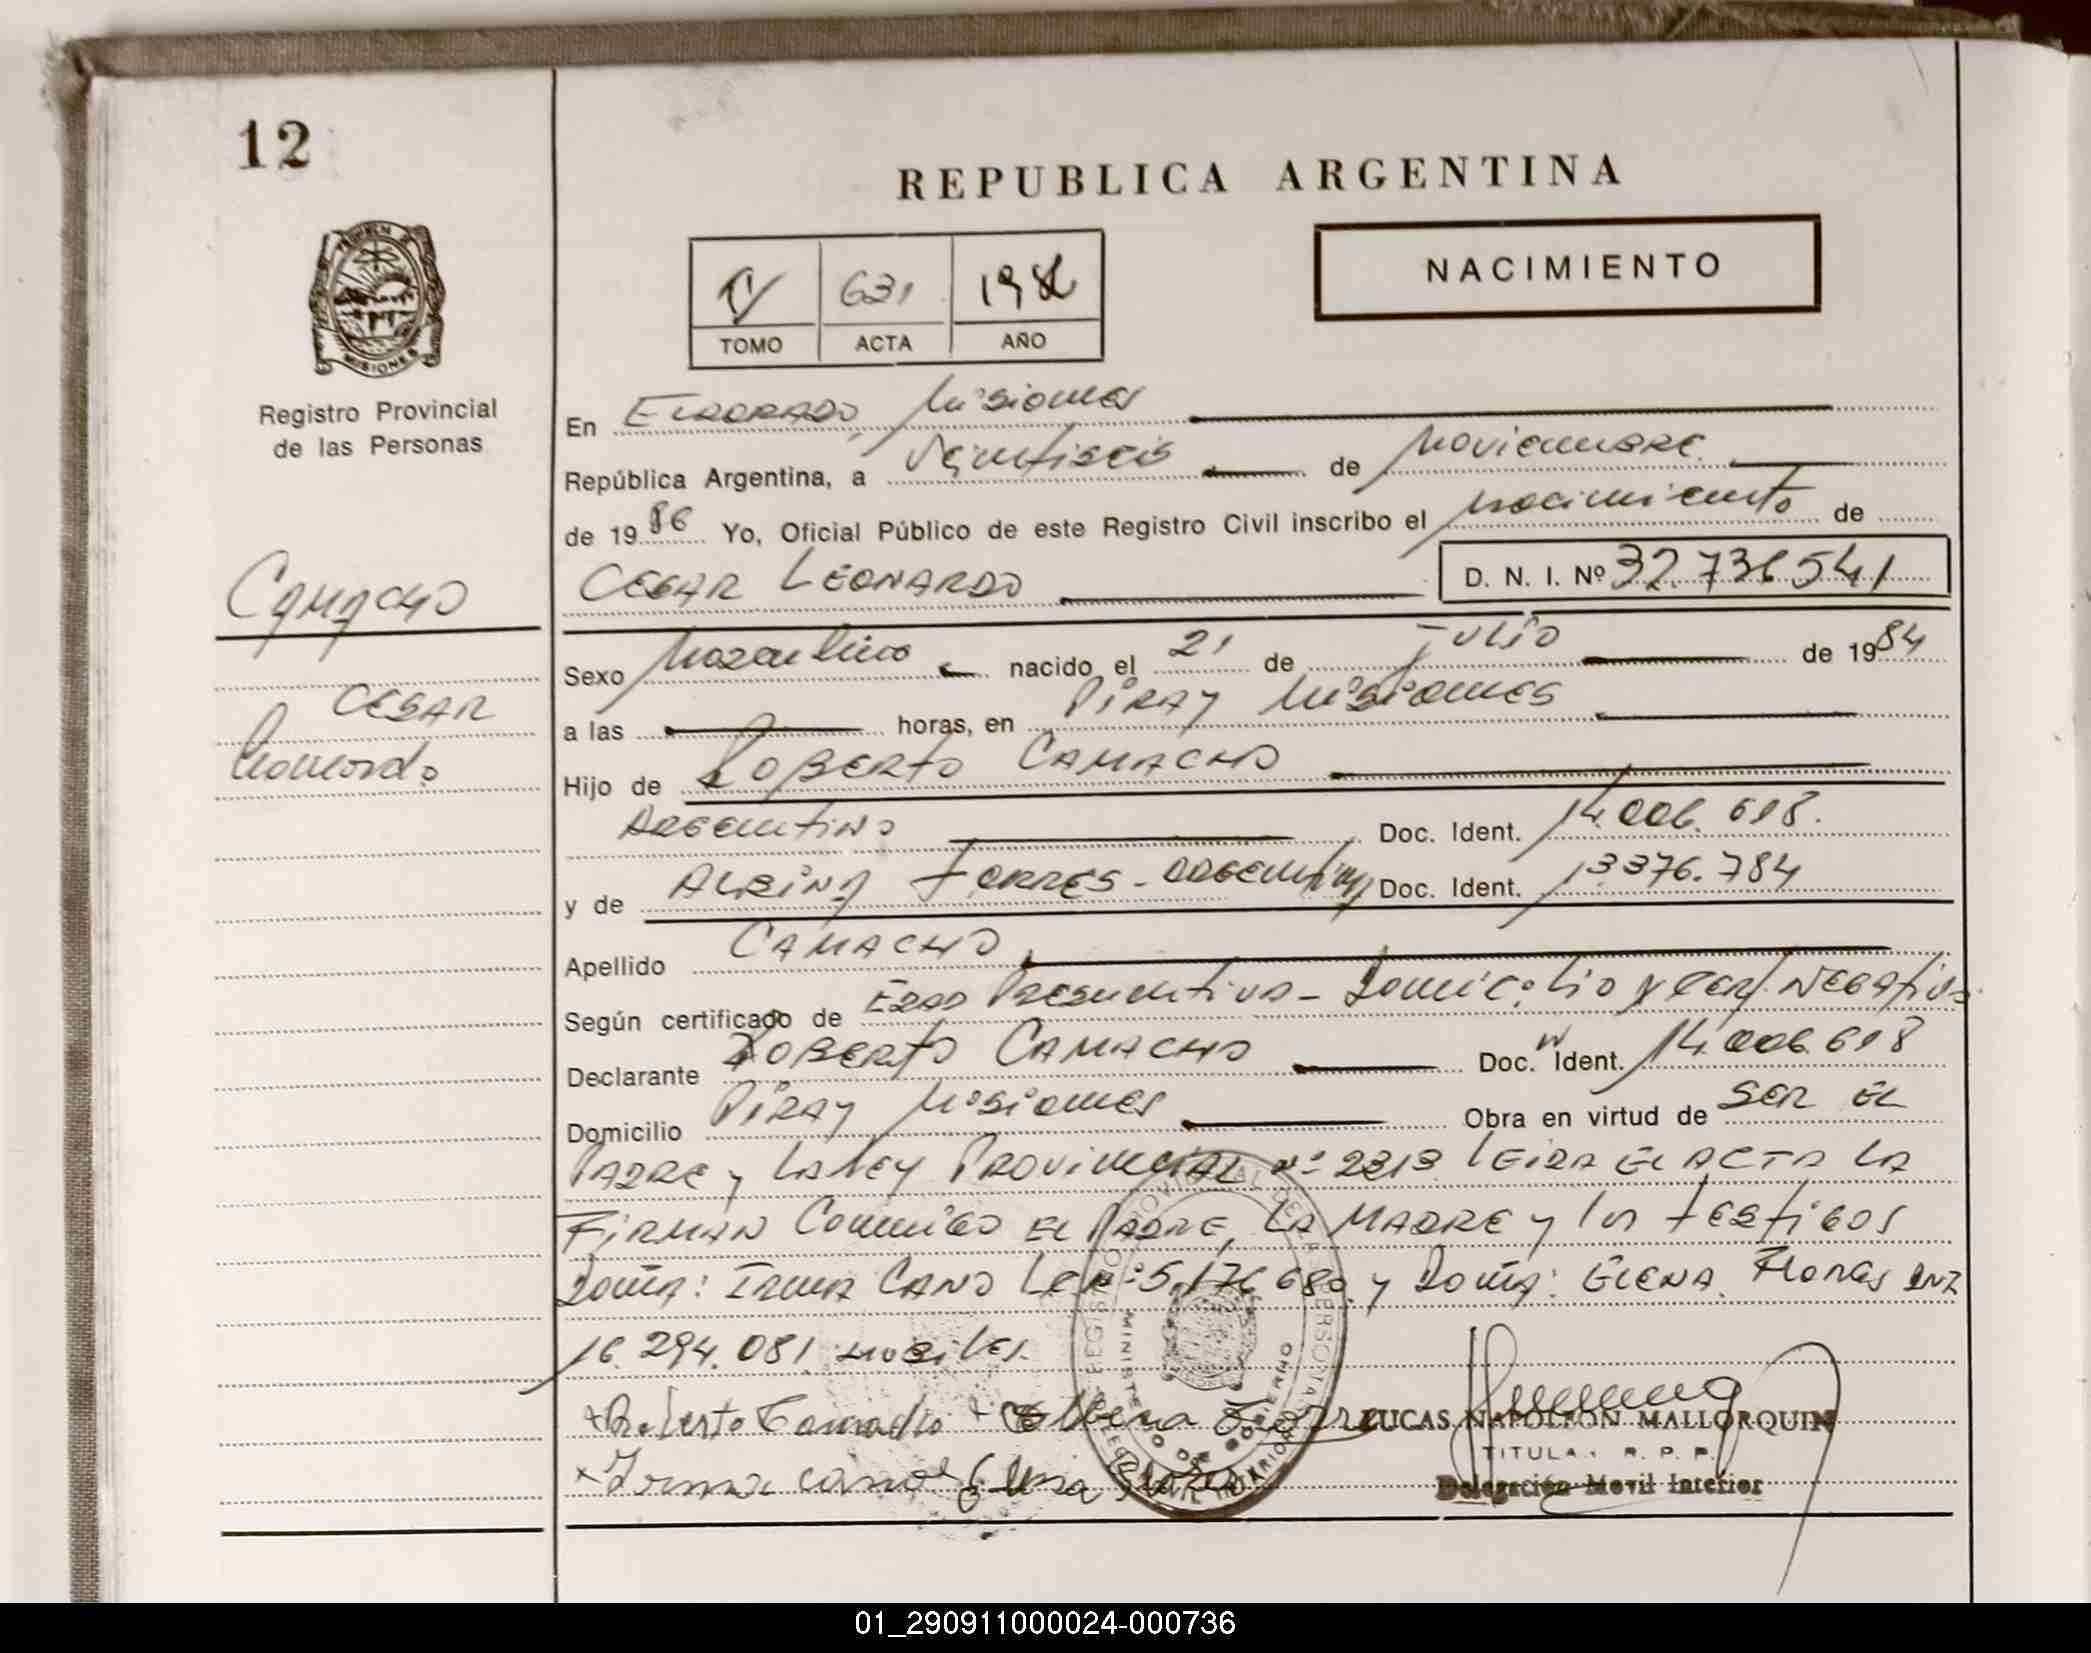 12
REPUBLICA ARGENTINA
NACIMIENTO
631 198
TOMO ACTA AÑO
MISIONES
Registro Provincial
de las Personas
En ELDORADO, Misiones
República Argentina, a Veintiseis de Noviembre
de 1986 Yo, Oficial Público de este Registro Civil inscribo el nacimiento de
CESAR LEONARDO D. N. I. Nº 32.736541
Camacho
CESAR
Leonardo
Sexo Masculino nacido el 21 de JULIO de 1984
a las horas, en PIRAY Misiones
Hijo de ROBERTO CAMACHO
Argentino Doc. Ident. 14.006.698.
y de ALBINA TORRES - argentina Doc. Ident. 13376.784
Apellido CAMACHO
Según certificado de EDAD Presuntiva - Domicilio y Cert. Negativo
Declarante ROBERTO CAMACHO Doc. Ident. 14.006.698
Domicilio PIRAY Misiones Obra en virtud de SER EL
PADRE y La Ley PROVINCIAL Nº LEIDA EL ACTA LA
FIRMAN Conmigo EL PADRE, LA MADRE y los testigos
Doña: IRMA CANO Nº 5.176.680 y Doña: ELENA
16.294.081
Roberto Camacho Torre
Irma cano
LUCAS NAPOLEON MALLORQUIN
TITULAR R. P. P.
Delegación Movil Interior
01_290911000024-000736